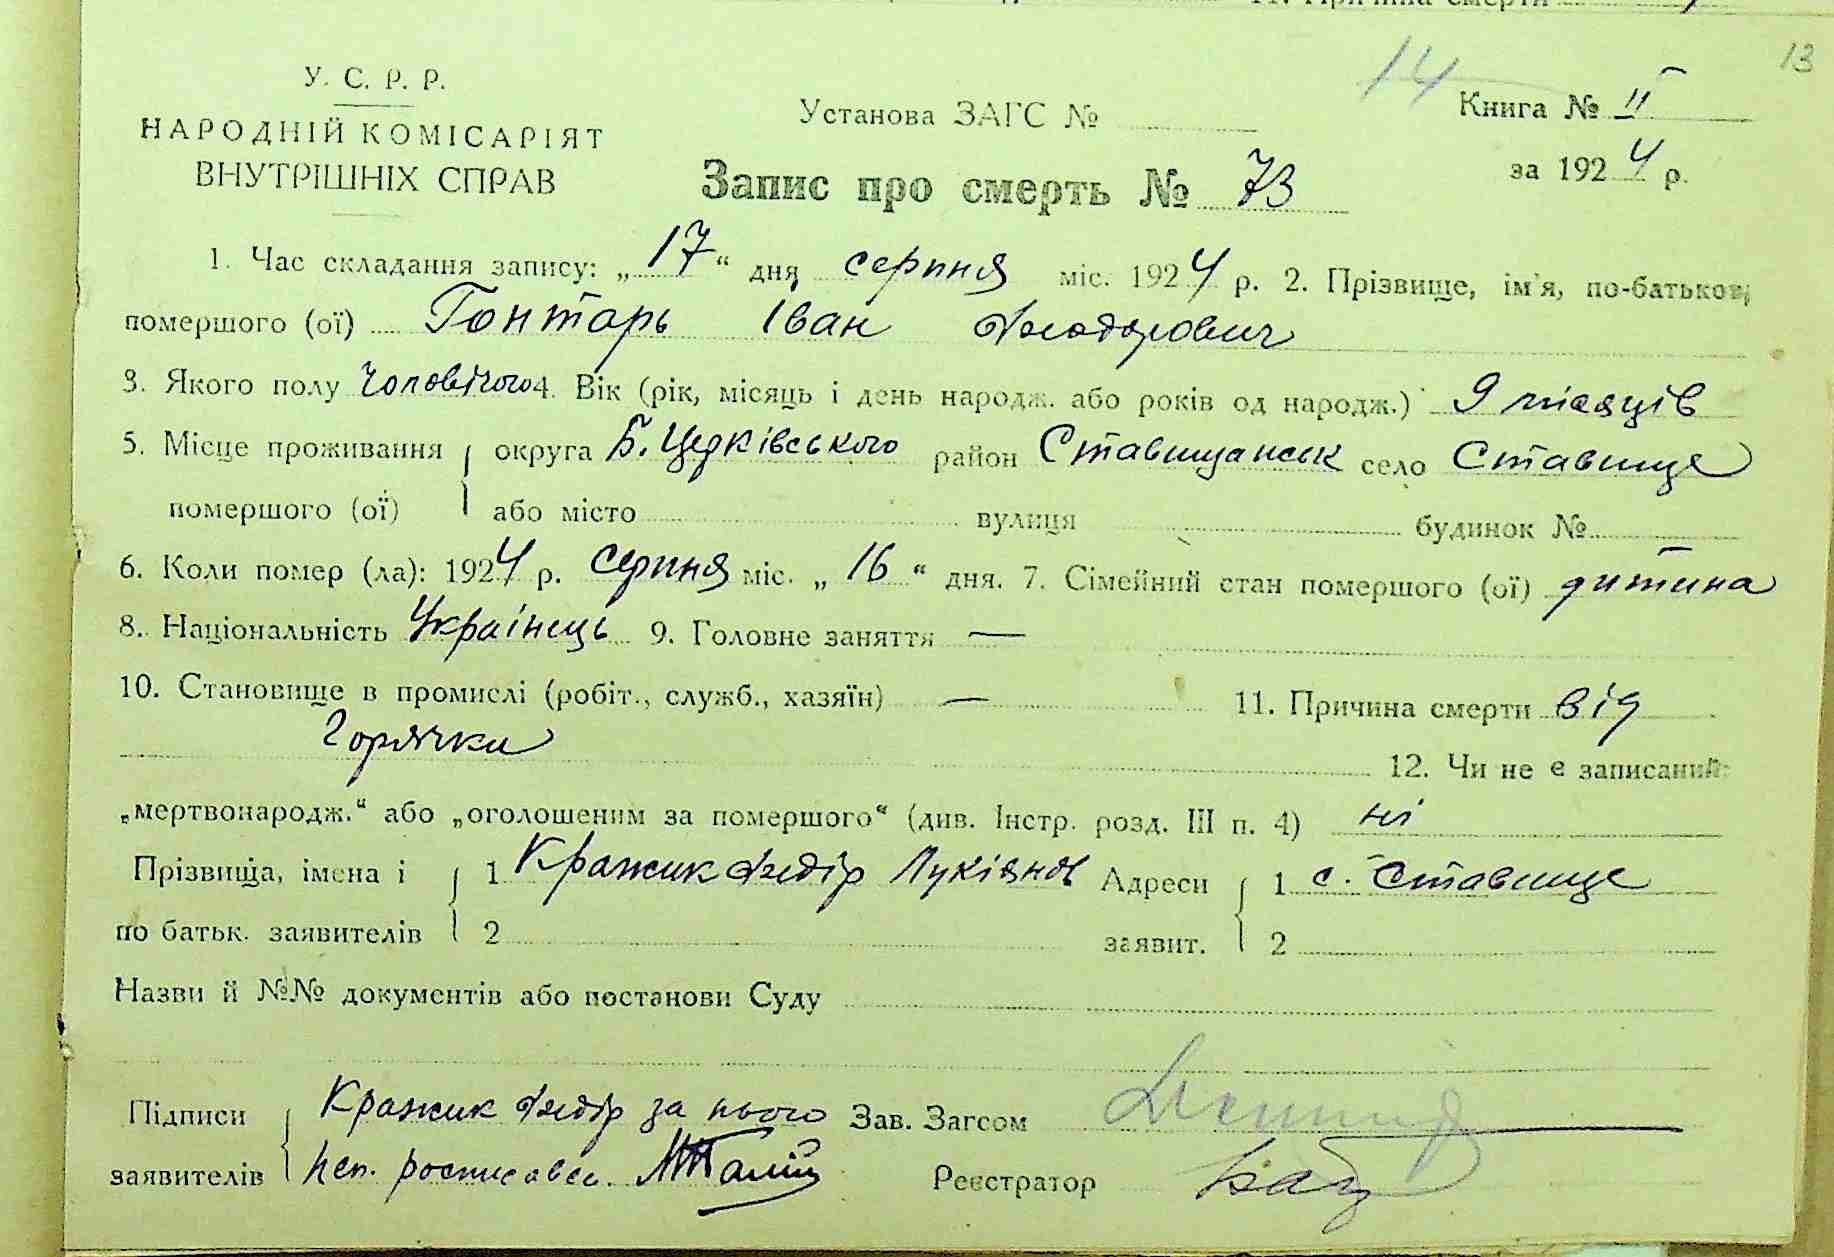 11. Причина смерти
14
13
У. С. Р. Р.
НАРОДНІЙ КОМІСАРІЯТ
ВНУТРІШНІХ СПРАВ
Установа ЗАГС №
Книга № II
за 1924 р.
Запис про смерть № 73
1. Час складання запису: „17“ дня серпня міс. 1924 р. 2. Прізвище, ім'я, по-батькові
помершого (ої) Гонтарь Іван Теодорович
3. Якого полу Чоловічого 4. Вік (рік, місяць і день народж. або років од народж.) 9 місяців
5. Місце проживання округа Б. Церківського район Ставищанськ село Ставище
помершого (ої) або місто вулиця будинок №
6. Коли помер (ла): 1924 р. серпня міс. „16“ дня. 7. Сімейний стан помершого (ої) дитина
8. Національність Українець 9. Головне заняття —
10. Становище в промислі (робіт., служб., хазяїн) — 11. Причина смерти від
Горячки
12. Чи не є записаний:
„мертвонародж.“ або „оголошеним за помершого“ (див. Інстр. розд. III п. 4) ні
Прізвища, імена і 1 Кражик Федір Лукіянов Адреси 1 с. Ставище
по батьк. заявителів 2 заявит. 2
Назви й №№ документів або постанови Суду
Підписи Кражик Федір за нього Зав. Загсом
заявителів неп. росписавсь. Реєстратор